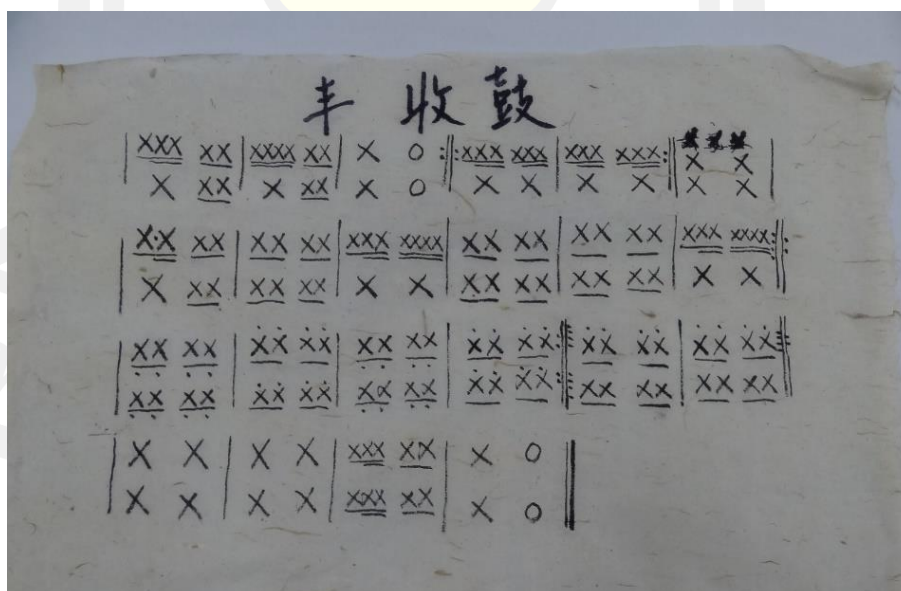 丰收鼓
| XXX XX | XXXX XX | X O :||: XXX XXX | XXX XXX :|| X X |
| X XX | X XX | X O :||: X X | X X :|| X X |
| X·X XX | XX XX | XXX XXXX | XX XX | XX XX | XXX XXXX :||
| X XX | XX XX | X X | XX XX | XX XX | X X :||
| XX XX | XX XX | XX XX | XX XX :|| XX XX | XX XX :||
| XX XX | XX XX | XX XX | XX XX :|| XX XX | XX XX ||
| X X | X X | XXX XX | X O ||
| X X | X X | XXX XX | X O ||